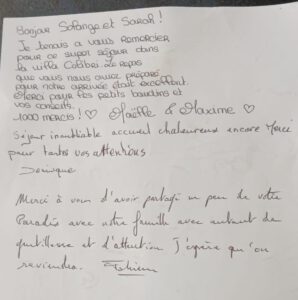 Bonjour Solange et Sarah !
Je tenais a vous remercier
pour ce super séjour dans
la villa Colibri. Le repas
que vous nous aviez préparé
pour notre arrivée était excellent.
Merci pour les petits boudins et
vos conseils.
1000 mercis ! ♡ Maëffe & Maxime ♡
Séjour inoubliable accueil chaleureux encore Merci
pour toutes vos attentions
Merci à vous d'avoir partagé un peu de votre
Paradis avec notre famille avec autant de
gentillesse et d'attention J'espère qu'on
reviendra.